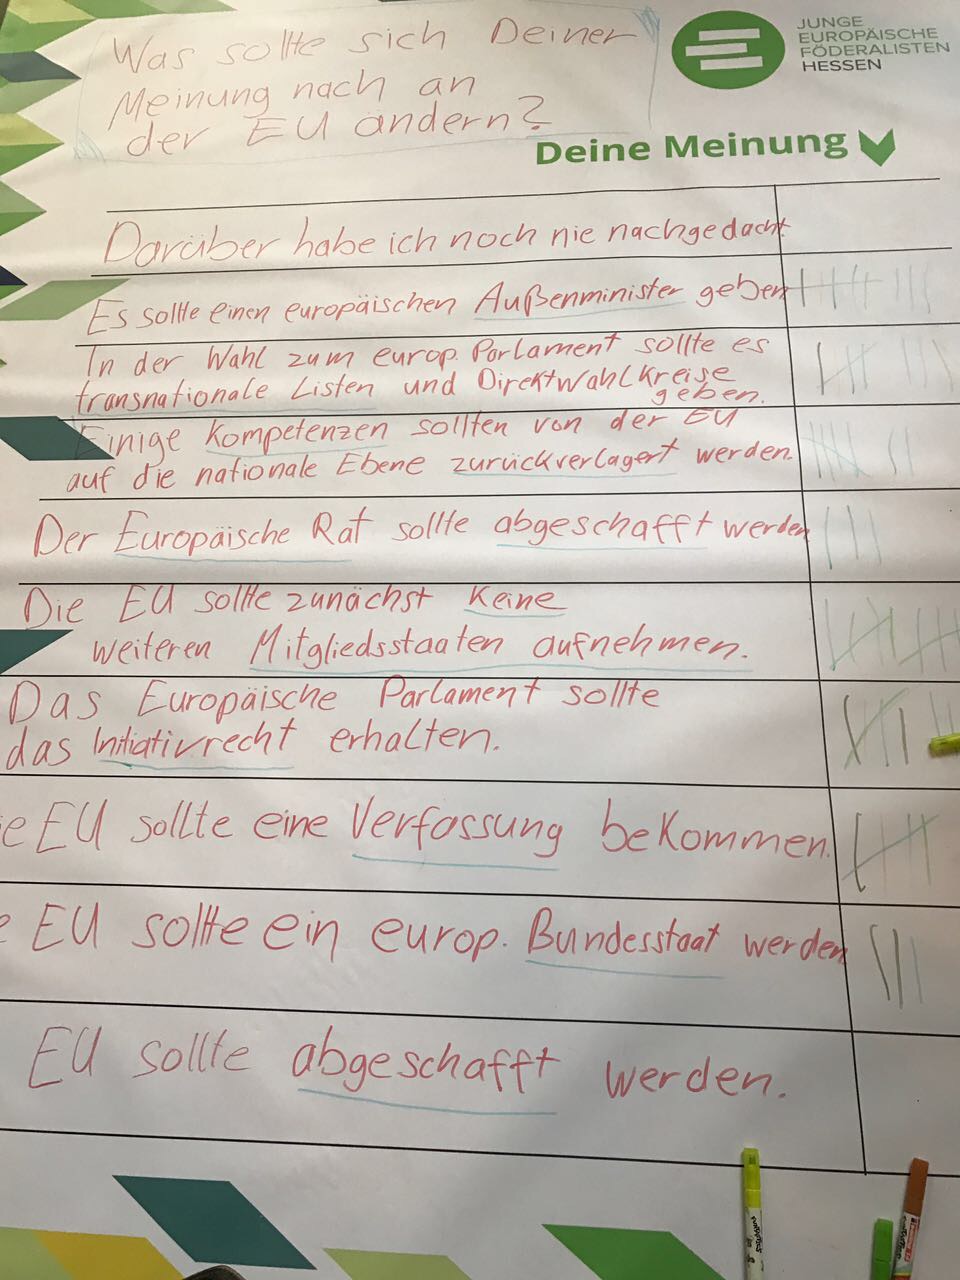 Was sollte sich Deiner
Meinung nach an
der EU ändern?
JUNGE
EUROPÄISCHE
FÖDERALISTEN
HESSEN
Deine Meinung
Darüber habe ich noch nie nachgedacht
Es sollte einen europäischen Außenminister geben
In der Wahl zum europ. Parlament sollte es
transnationale Listen und Direktwahlkreise
geben.
Einige Kompetenzen sollten von der EU
auf die nationale Ebene zurückverlagert werden.
Der Europäische Rat sollte abgeschafft werden
Die EU sollte zunächst keine
weiteren Mitgliedsstaaten aufnehmen.
Das Europäische Parlament sollte
das Initiativrecht erhalten.
e EU sollte eine Verfassung bekommen.
e EU sollte ein europ. Bundesstaat werden
EU sollte abgeschafft werden.